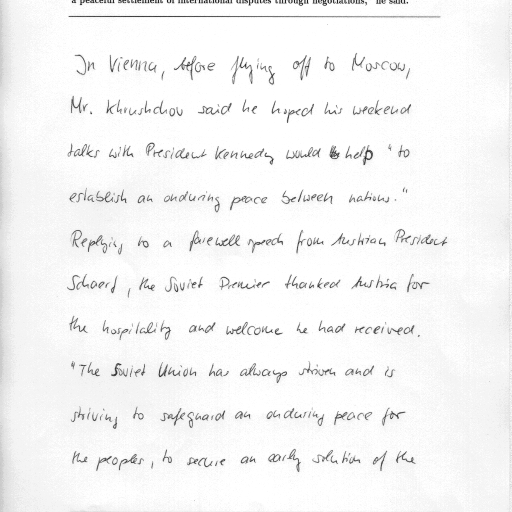 a peaceful settlement of international disputes through negotiations," he said.
In Vienna, before flying off to Moscow,
Mr. Khrushchov said he hoped his weekend
talks with President Kennedy would help "to
establish an enduring peace between nations."
Replying to a farewell speech from Austrian President
Schaerf, the Soviet Premier thanked Austria for
the hospitality and welcome he had received.
"The Soviet Union has always striven and is
striving to safeguard an enduring peace for
the peoples, to secure an early solution of the